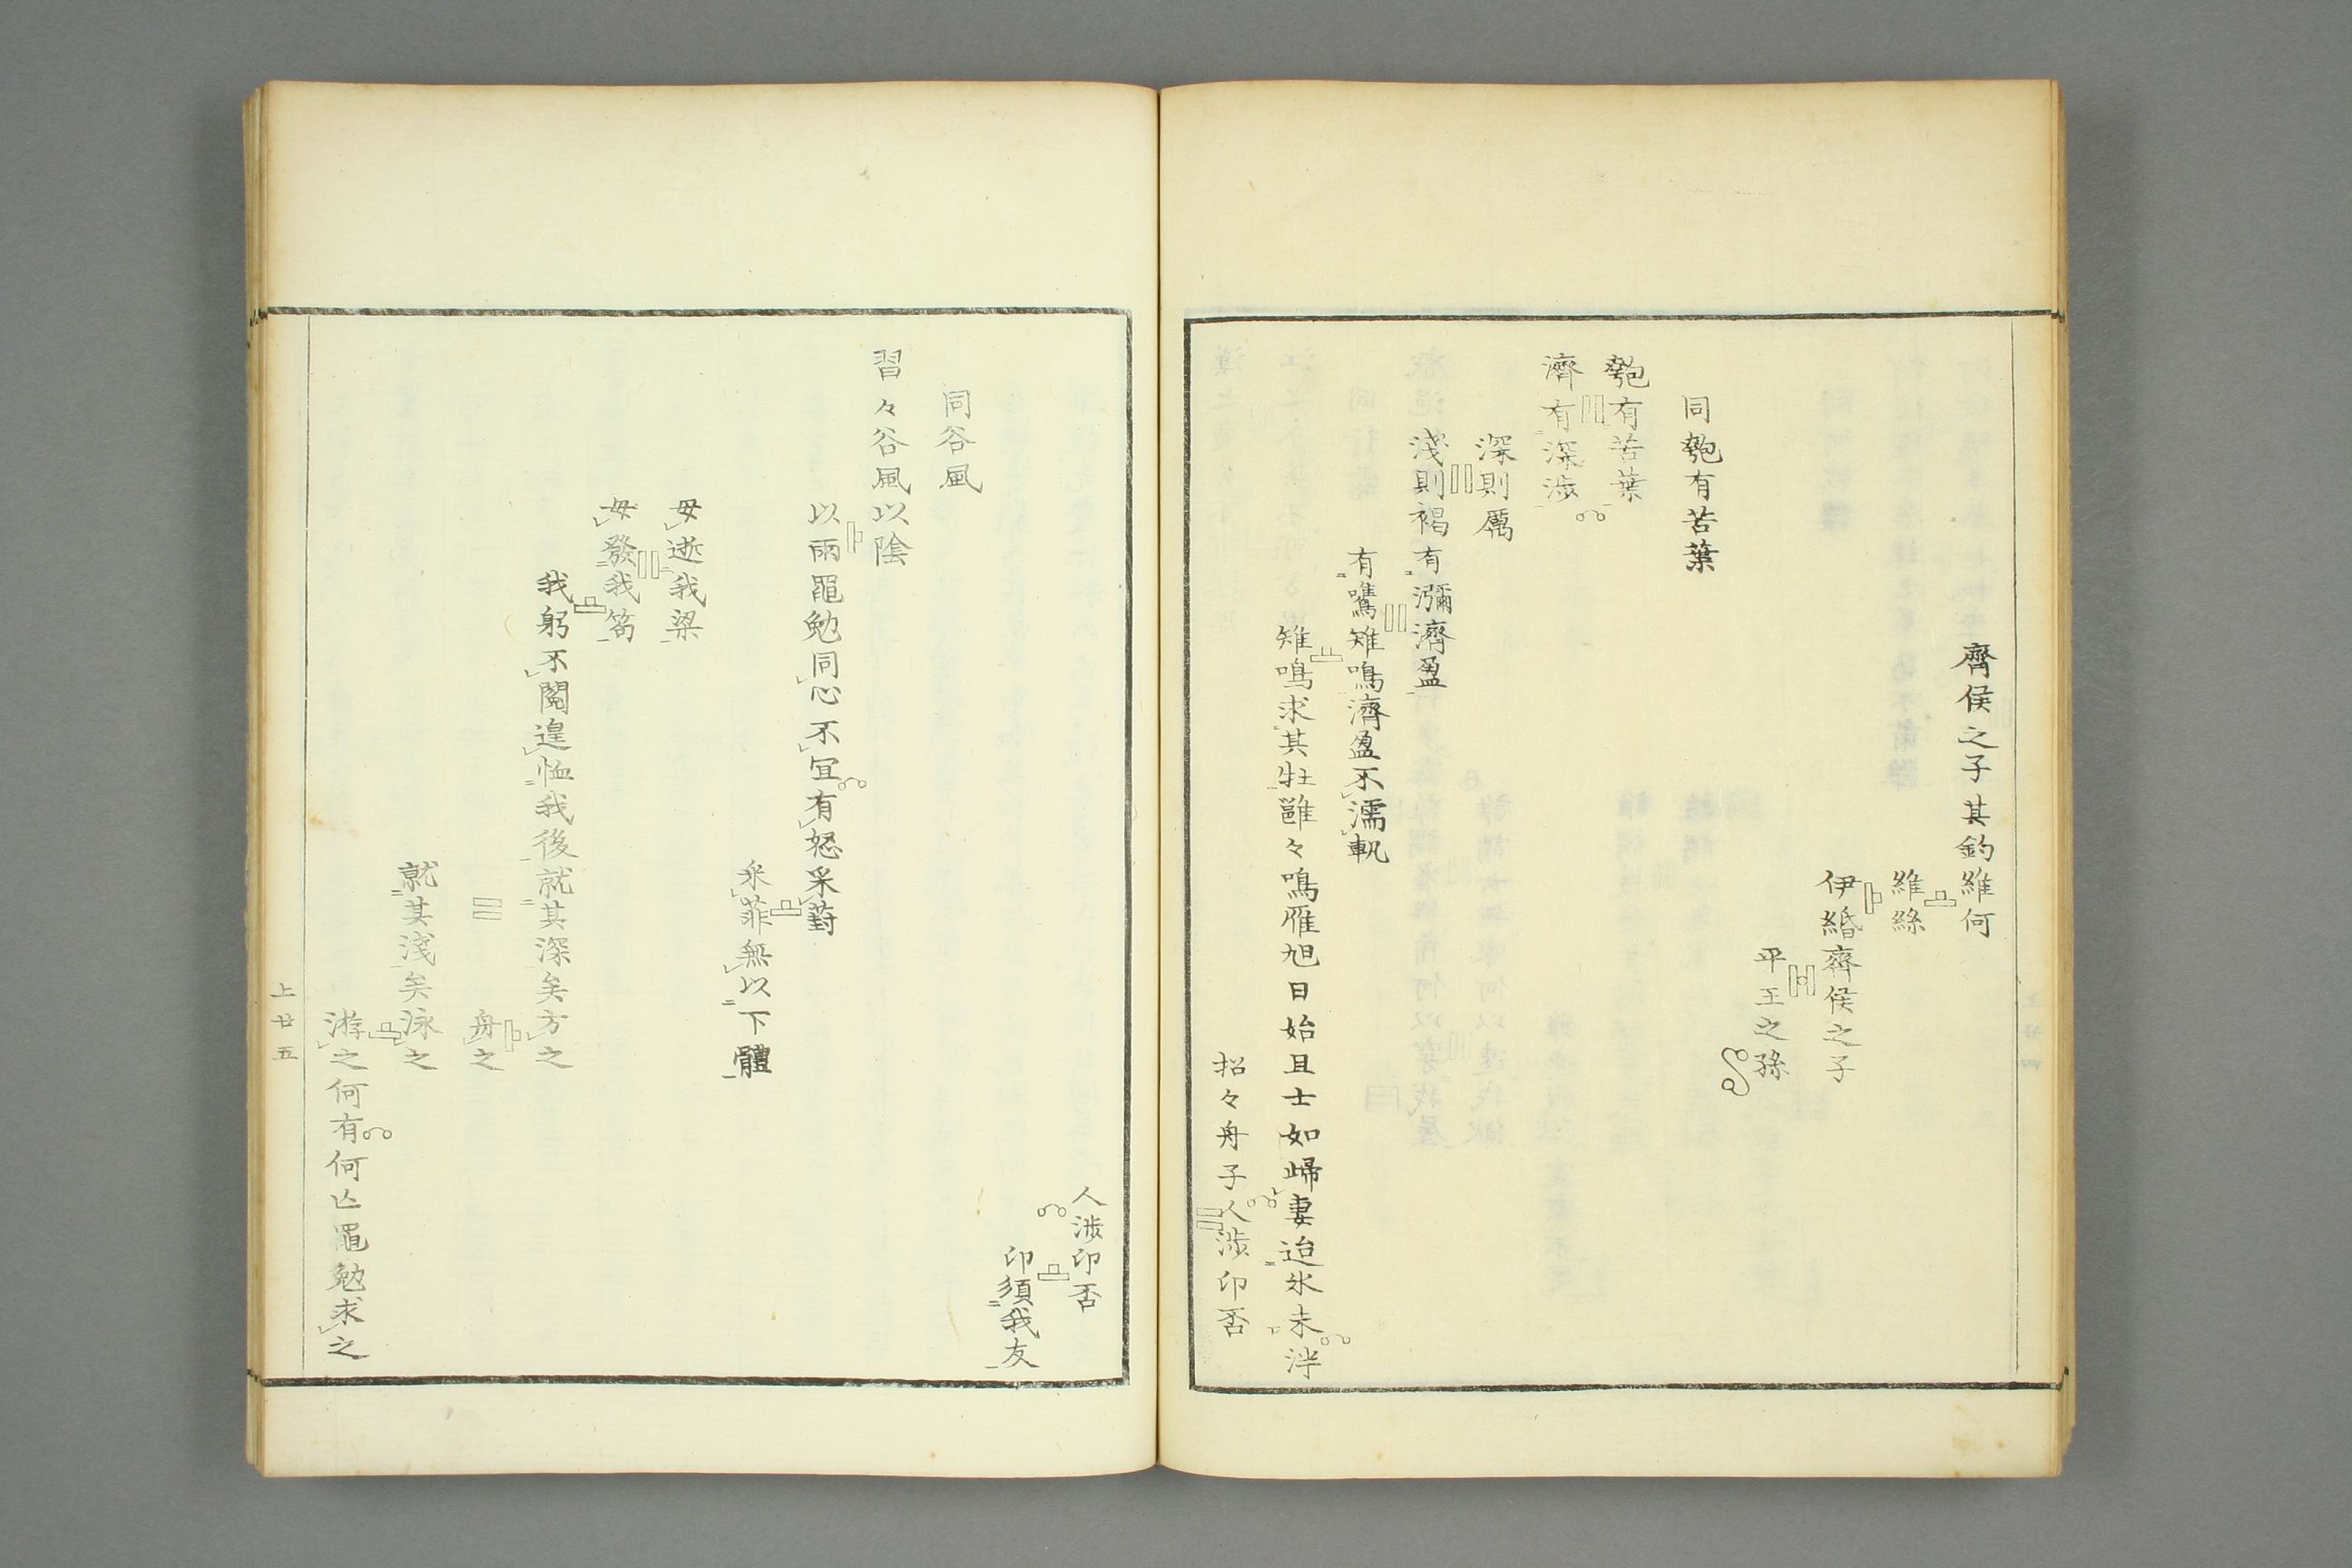 齊侯之子其釣維何
維絲
伊緡齊侯之子
平王之孫
同匏有苦葉
匏有苦葉
濟有深涉
深則厲
淺則褐有瀰濟盈
有鷕雉鳴濟盈不濡軌
雉鳴求其牡雝々鳴雁旭日始旦士如歸妻迨氷未泮
招々舟子人涉卬否
人涉卬否
卬須我友
同谷風
習々谷風以陰
以雨黽勉同心不宜有怒采葑
采菲無以下體
毋逝我梁
毋發我笱
我躬不閱遑恤我後就其深矣方之
舟之
就其淺矣泳之
游之何有何亡黽勉求之
上廿五